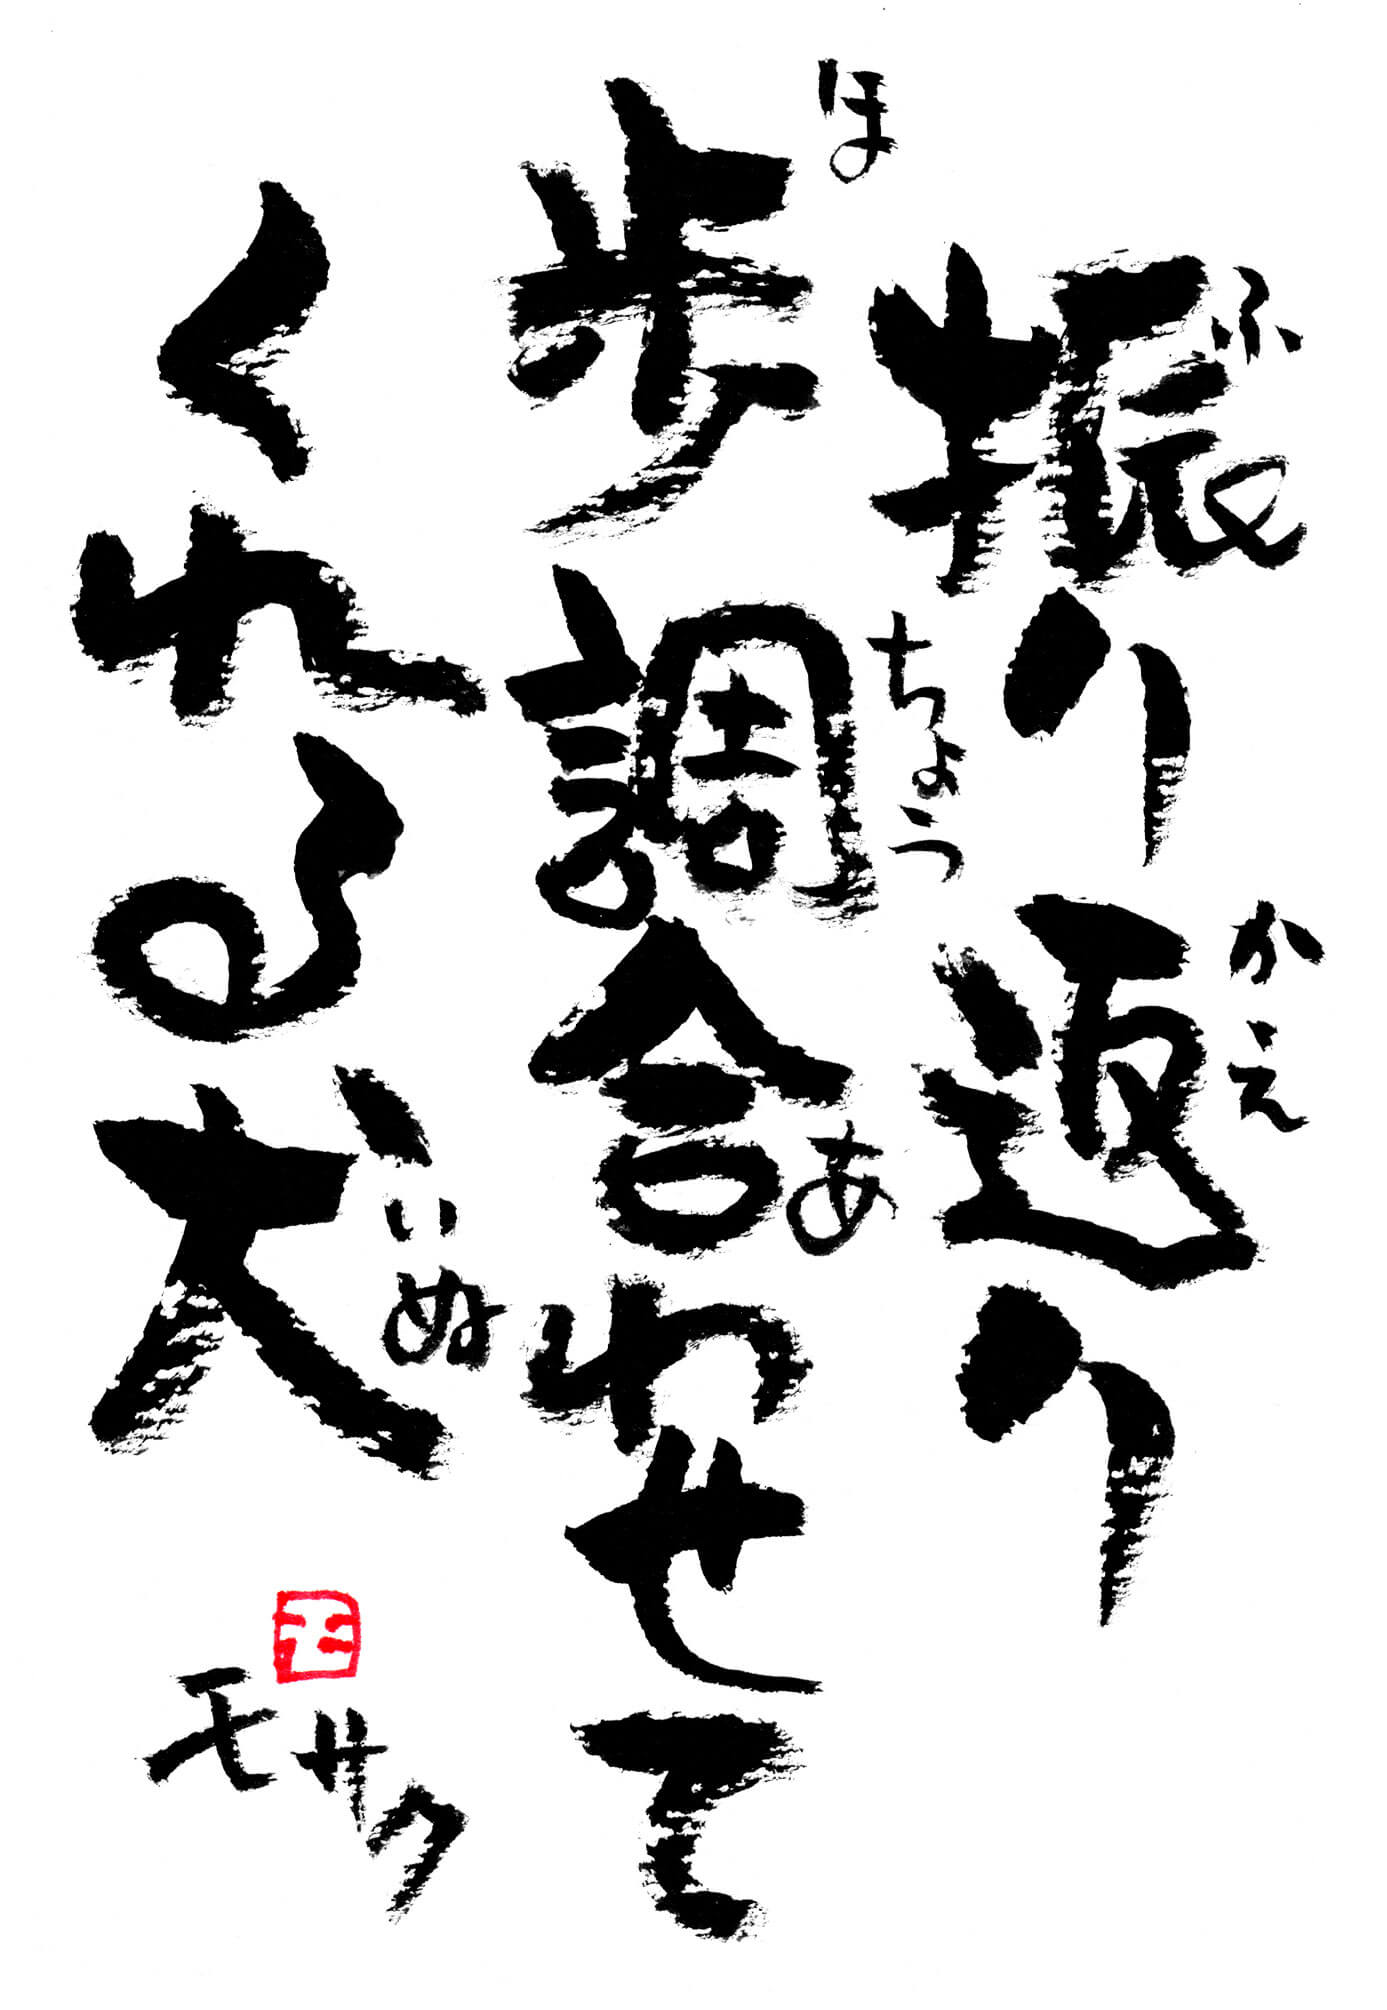 振り返り
ふ
かえ
歩調合わせて
ほ
ちょう
あ
くれる犬
いぬ
モ
モサク